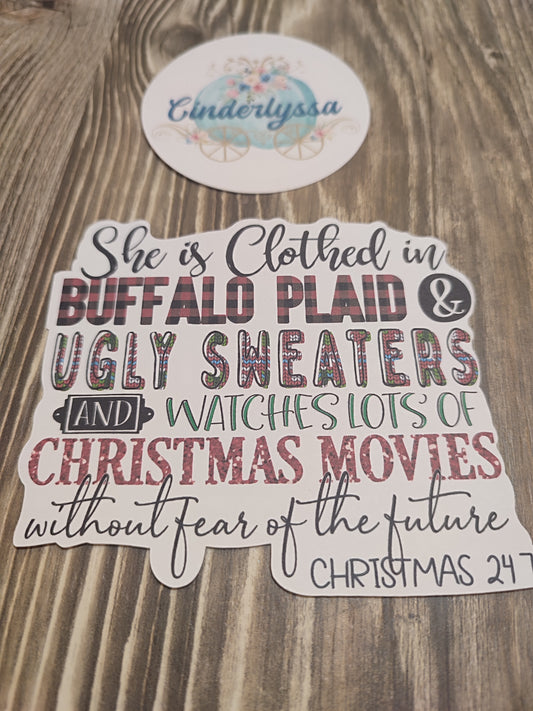 Cinderlyssa
She is Clothed in
BUFFALO PLAID &
UGLY SWEATERS
AND WATCHES LOTS' OF
CHRISTMAS MOVIES
without fear of the future
CHRISTMAS 24 7